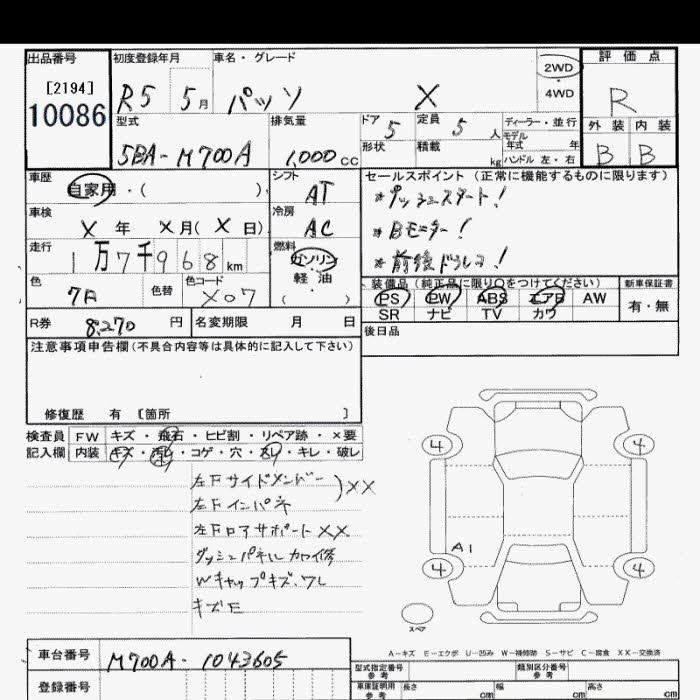 出品番号 初度登録年月 車名・グレード 2WD 評価点
[2194] R5 5月 パッソ X 4WD R
10086
型式 排気量 ドア 5 定員 5人 ディーラー・並行 外装 内装
5BA-M700A 1,000cc 形状 積載 kg モデル年式 年 B B
ハンドル 左・右
車歴 自家用・( ) シフト AT セールスポイント(正常に機能するものに限ります)
*プッシュスタート!
車検 X年 X月(X日) 冷房 AC *Bモニター!
走行 1万7千968km 燃料 ガソリン・軽油 ( ) *前後ドラレコ!
色 色替 色コード X07 装備品(純正品に限り○をつけてください) 新車保証書
PS PW ABS エアB AW 有・無
SR ナビ TV カワ
R券 8,270円 名変期限 月 日 後日品
注意事項申告欄(不具合内容等は具体的に記入して下さい)
修復歴 有 [箇所 ]
検査員 FW キズ・飛石・ヒビ割・リペア跡・×要
記入欄 内装 キズ・汚レ・コゲ・穴・スレ・キレ・破レ
左Fサイドメンバー )XX
左Fインパネ
左Fロアサポート XX
ダッシュパネル カロ修
Wキャップキズ、ワレ
キズE
4 4
A1
4 4
スペア
A-キズ E-エクボ U-凹み W-補修跡 S-サビ C-腐食 XX-交換済
車台番号 M700A-1043605 型式指定番号 参考 類別区分番号 参考
登録番号 車庫証明用 参考 長さ cm 幅 cm 高さ cm